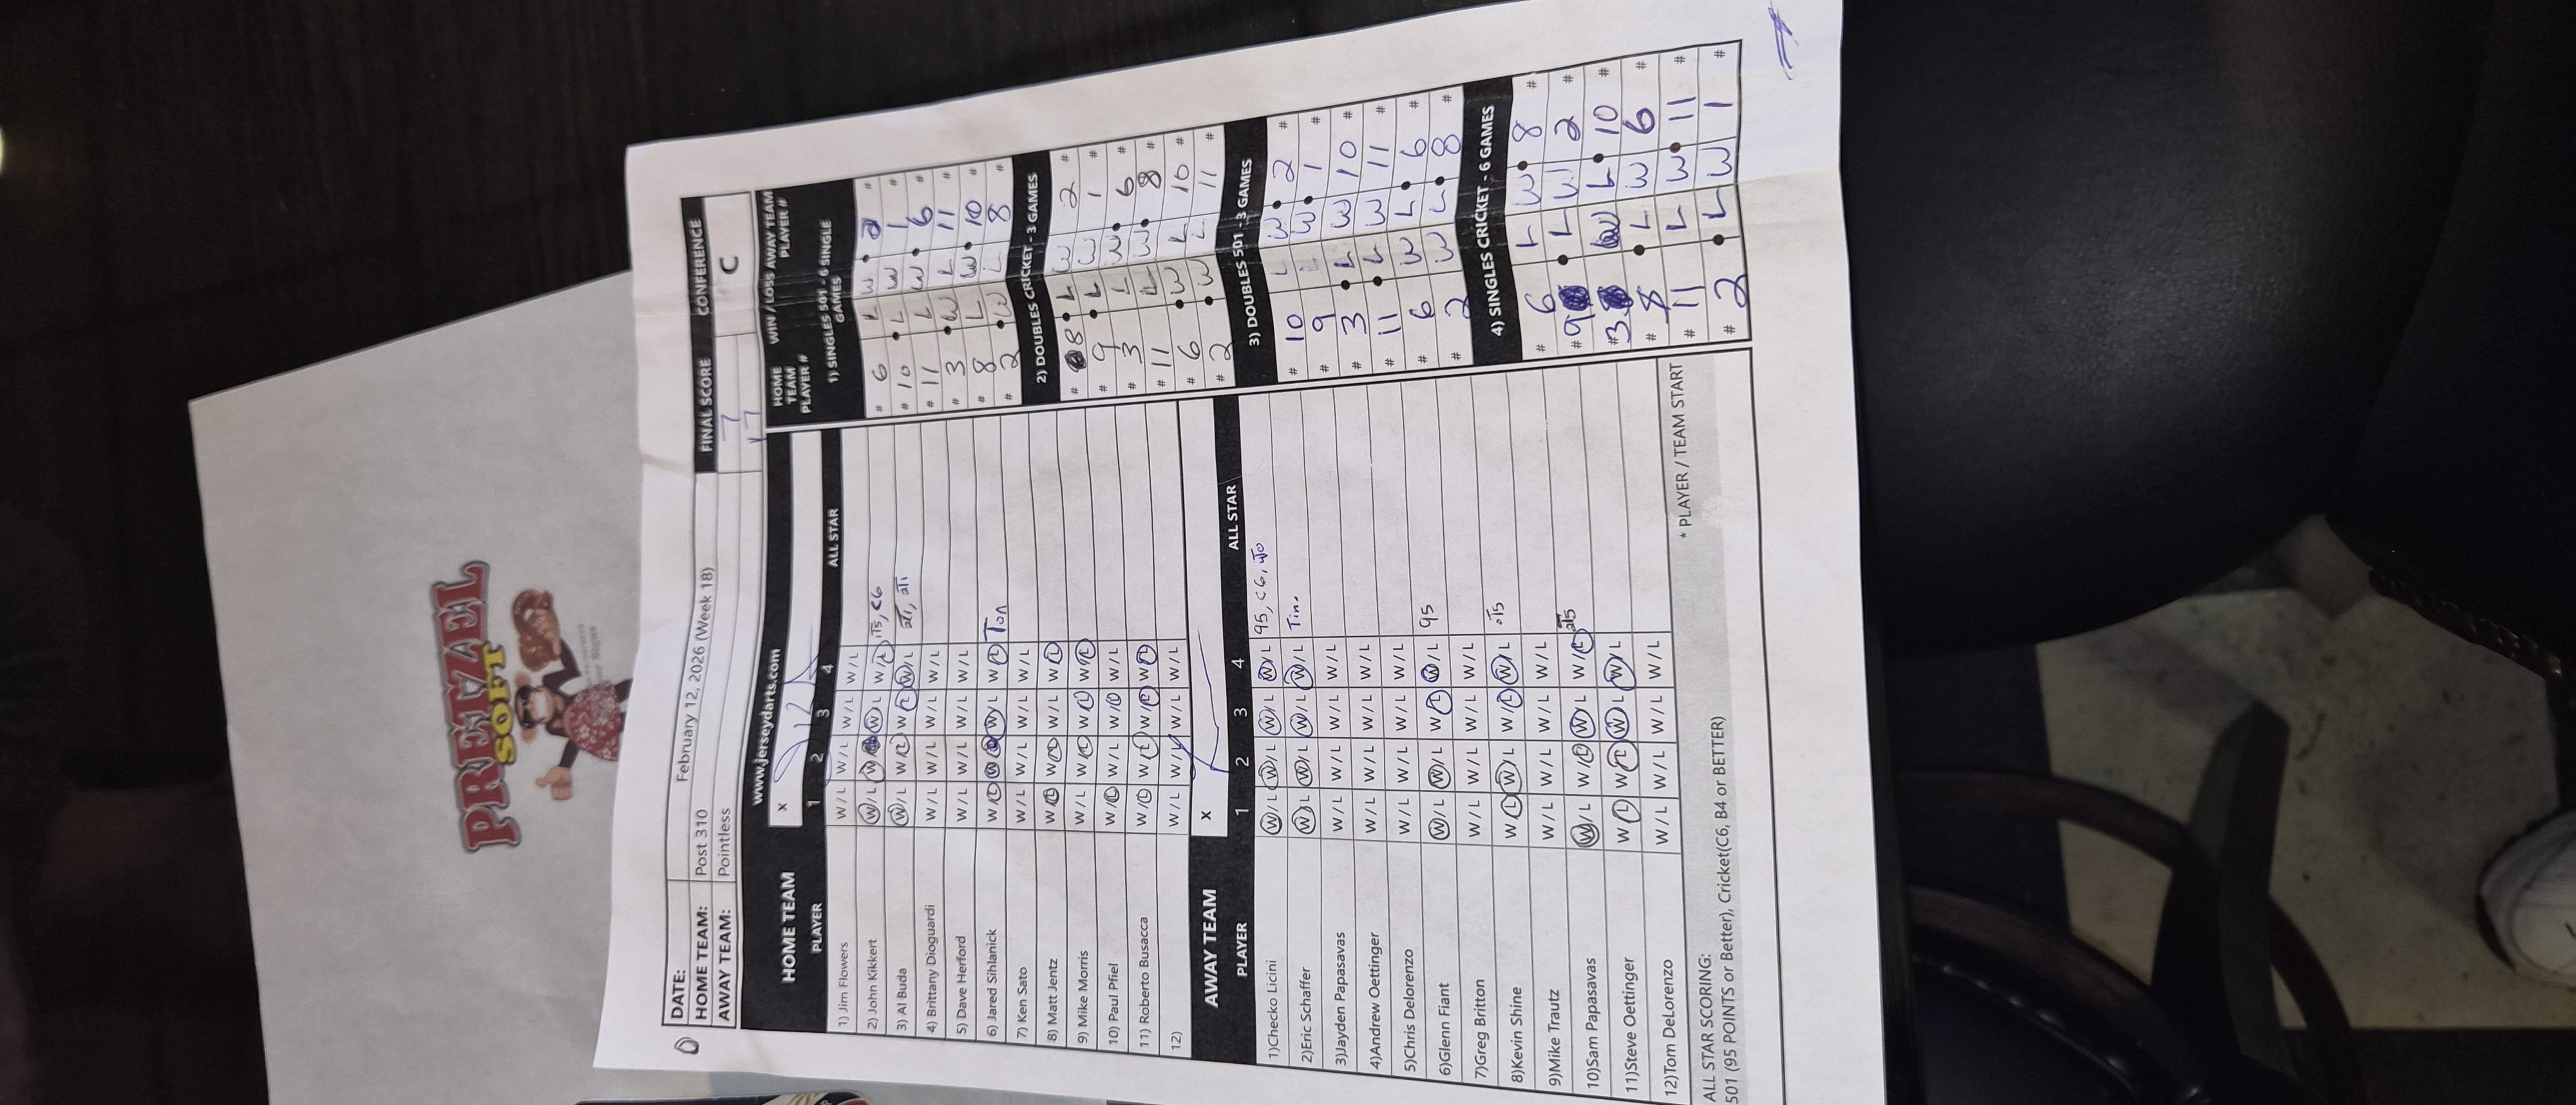 PRETZEL
SOFT
DATE: February 12, 2026 (Week 18)
HOME TEAM: Post 310
AWAY TEAM: Pointless
FINAL SCORE
7
17
CONFERENCE
C
www.jerseydarts.com
HOME TEAM X
PLAYER 1 2 3 4 ALL STAR
1) Jim Flowers W / L W / L W / L W / L
2) John Kikkert W / L W / L W / L W / L C6
3) Al Buda W / L W / L W / L W / L
4) Brittany Dioguardi W / L W / L W / L W / L
5) Dave Herford W / L W / L W / L W / L
6) Jared Sihlanick W / L W / L W / L W / L Ton
7) Ken Sato W / L W / L W / L W / L
8) Matt Jentz W / L W / L W / L W / L
9) Mike Morris W / L W / L W / L W / L
10) Paul Pfiel W / L W / L W / L W / L
11) Roberto Busacca W / L W / L W / L W / L
12) W / L W / L W / L W / L
AWAY TEAM X
PLAYER 1 2 3 4 ALL STAR
1)Checko Licini W / L W / L W / L W / L 95, C6,
2)Eric Schaffer W / L W / L W / L W / L
3)Jayden Papasavas W / L W / L W / L W / L
4)Andrew Oettinger W / L W / L W / L W / L
5)Chris Delorenzo W / L W / L W / L W / L
6)Glenn Fiant W / L W / L W / L W / L 95
7)Greg Britton W / L W / L W / L W / L
8)Kevin Shine W / L W / L W / L W / L
9)Mike Trautz W / L W / L W / L W / L
10)Sam Papasavas W / L W / L W / L W / L
11)Steve Oettinger W / L W / L W / L W / L
12)Tom DeLorenzo W / L W / L W / L W / L
* PLAYER / TEAM START
ALL STAR SCORING:
501 (95 POINTS or Better), Cricket(C6, B4 or BETTER)
HOME TEAM PLAYER # WIN / LOSS AWAY TEAM PLAYER #
1) SINGLES 501 - 6 SINGLE GAMES
# 6 L W 2 #
# 10 L W 1 #
# 11 L W 6 #
# 3 W L 11 #
# 8 L W 10 #
# 2 W L 8 #
2) DOUBLES CRICKET - 3 GAMES
# 8 L W 2 #
# 9 L W 1 #
# 3 L W 6 #
# 11 L W 8 #
# 6 W L 10 #
# 2 W L 11 #
3) DOUBLES 501 - 3 GAMES
# 10 L W 2 #
# 9 L W 1 #
# 3 L W 10 #
# 11 L W 11 #
# 6 W L 6 #
# 2 W L 8 #
4) SINGLES CRICKET - 6 GAMES
# 6 L W 8 #
# 9 L W 2 #
# 3 W L 10 #
# 8 L W 6 #
# 11 L W 11 #
# 2 L W 1 #